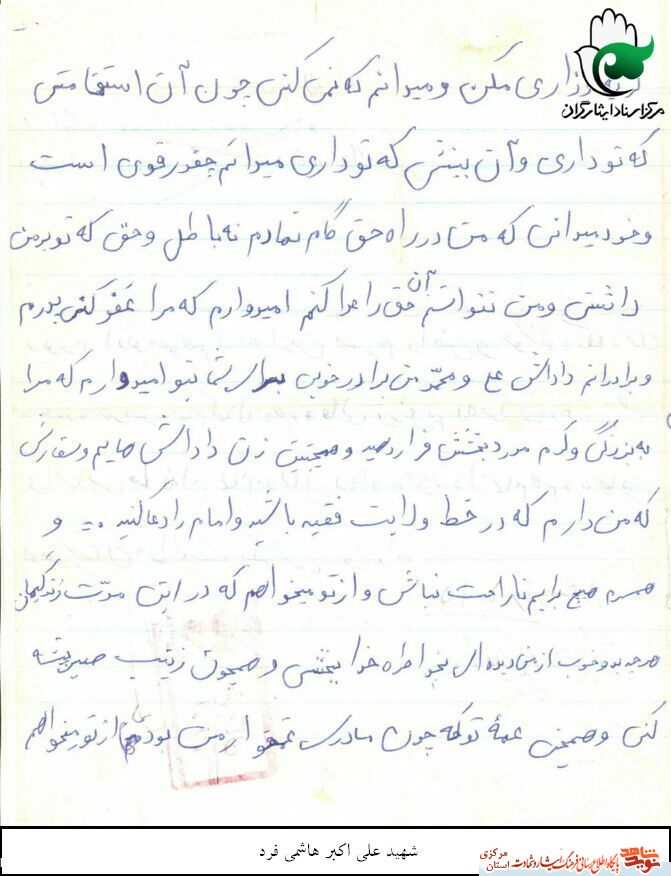 مرکز اسناد ایثارگران
زاری مکن و میدانم که نمی کنی چون آن استقامتی
که تو داری و آن بینش که تو داری میدانم چقدر قوی است
و خود میدانی که من در راه حق گام نهادم نه باطل و حق که تو بر من
داشتی و من نتوانستم آن حق را ادا کنم امیدوارم که مرا عفو کنی پدرم
و برادرانم داداش علی و محمد من برادر خوبی برای شما نبودم امیدوارم که مرا
به بزرگی و کرم مورد بخشش قرار دهید و همچنین زن داداش هایم و سفارش
که من دارم که در خط ولایت فقیه باشید و امام را دعا کنید .. و
همسرم هیچ برایم ناراحت نباش و از تو میخواهم که در این مدت زندگیمان
هر چه بد و خوب از من دیده ای بخاطر خدا ببخشی و همچون زینب صبر پیشه
کنی و همچنین عمه تو که چون مادری غمخوار من بودی از تو میخواهم
شهید علی اکبر هاشمی فرد
نوید شاهد
پایگاه اطلاع رسانی فرهنگ ایثار و شهادت استان مرکزی